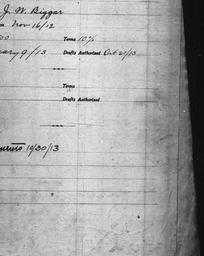 J. W. Biggar
Nov 16/12
Terms 10%
9/13 Drafts Authorized Oct 21/13
Terms
Drafts Authorized
10/30/13